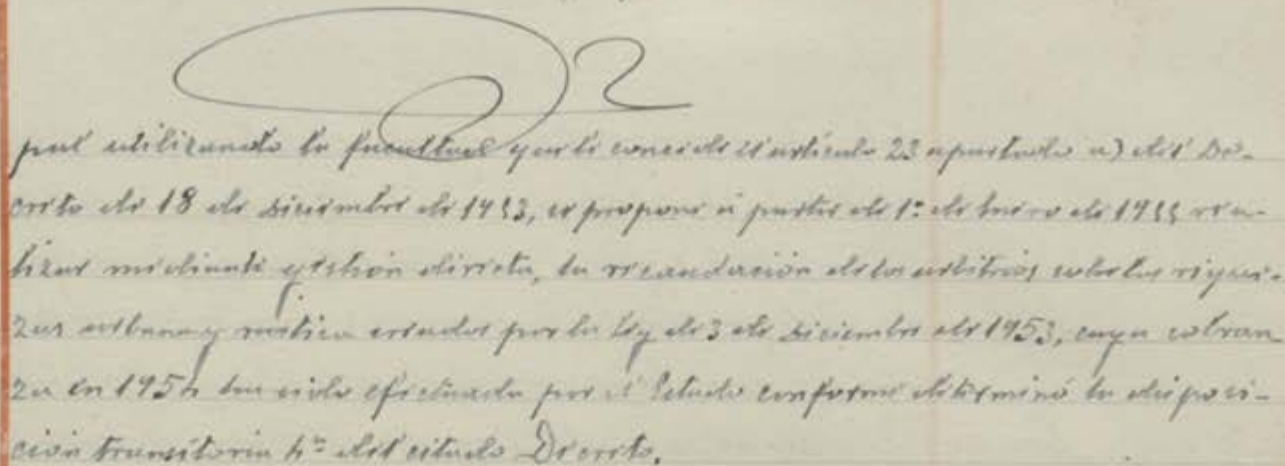 pal utilizando la facultad que le concede el artículo 23 apartado a) del De-
creto de 18 de diciembre de 1953, se propone a partir de 1º de Enero de 1955 rea-
lizar mediante gestión directa, la recaudación de los arbitrios sobre las rique-
zas urbana y rústica creados por la Ley de 3 de diciembre de 1953, cuya cobran
za en 1954 ha sido efectuada por el Estado conforme determinó la disposi-
ción transitoria 4ª del citado Decreto.